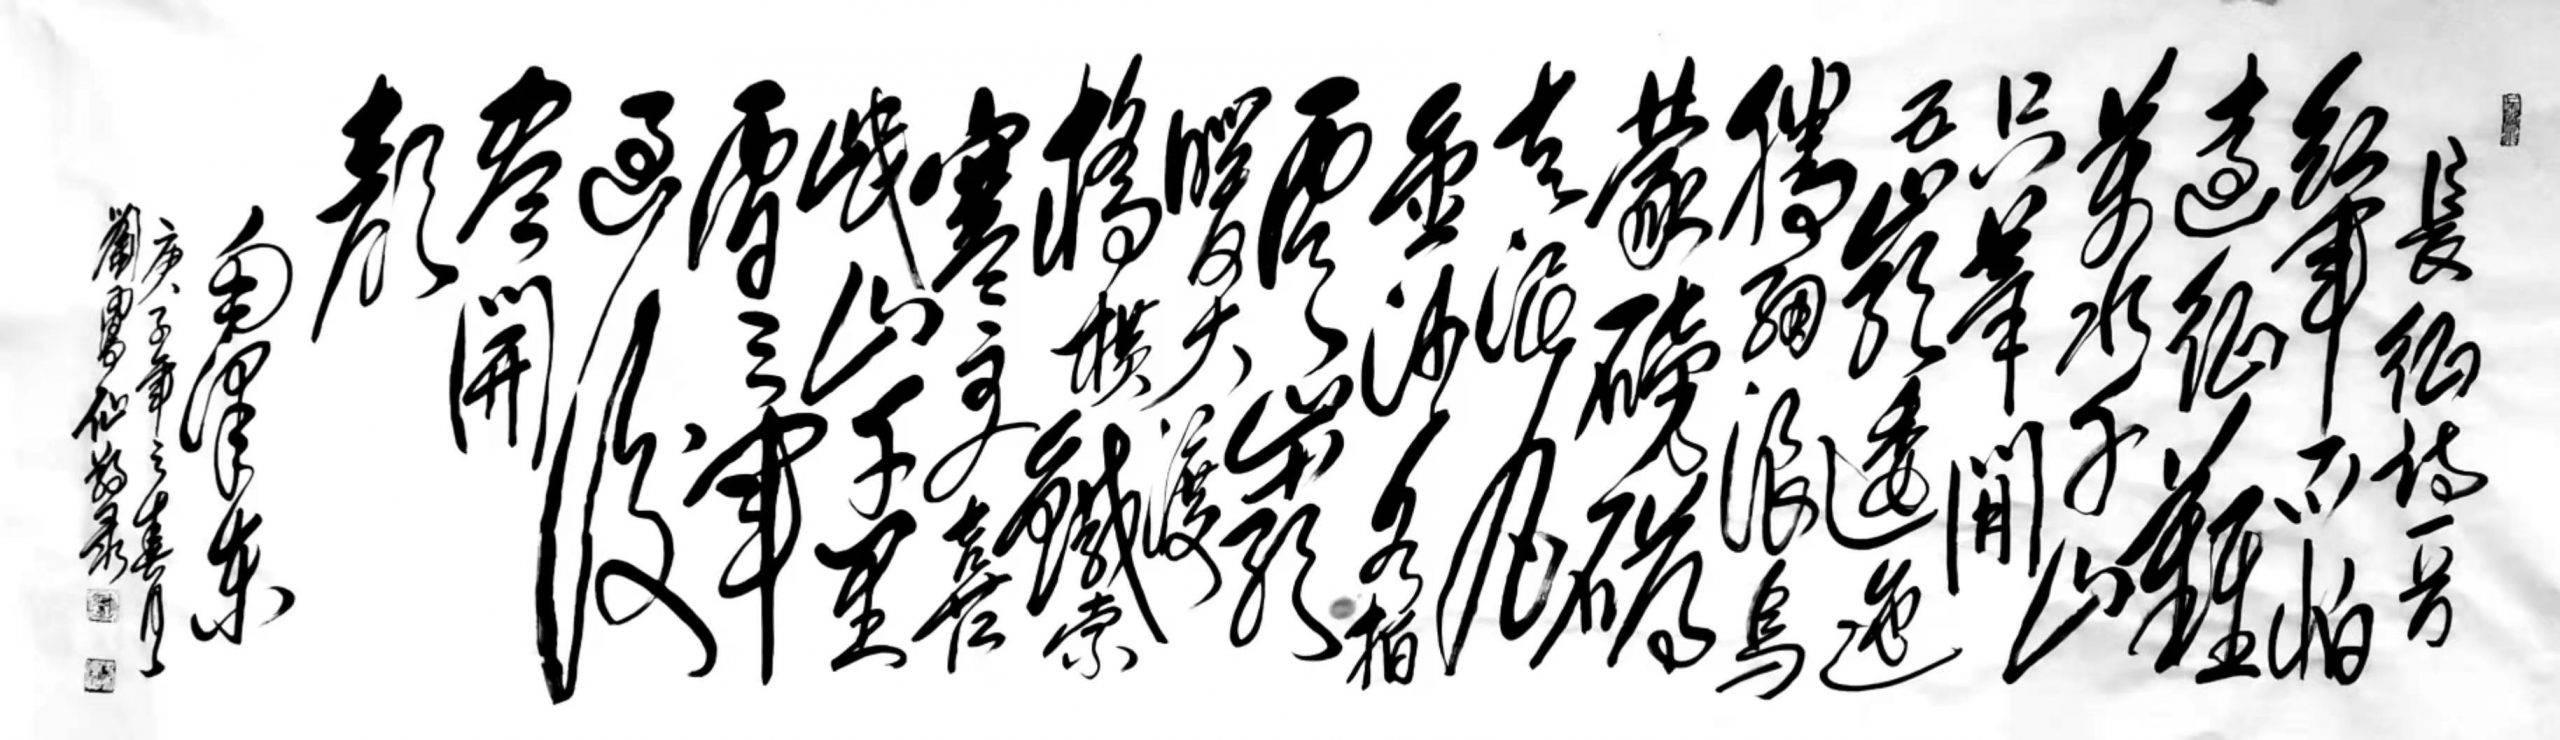 長征詩一首
紅軍不怕
遠征難
萬水千山
只等閒
五嶺逶迤
騰細浪烏
蒙磅礴
走泥丸
金沙水拍
雲崖
暖大渡
橋橫鐵索
寒更喜
岷山千里
雪三軍
過後
盡開
顏
毛澤東
庚子年之春月
劉仙敬录